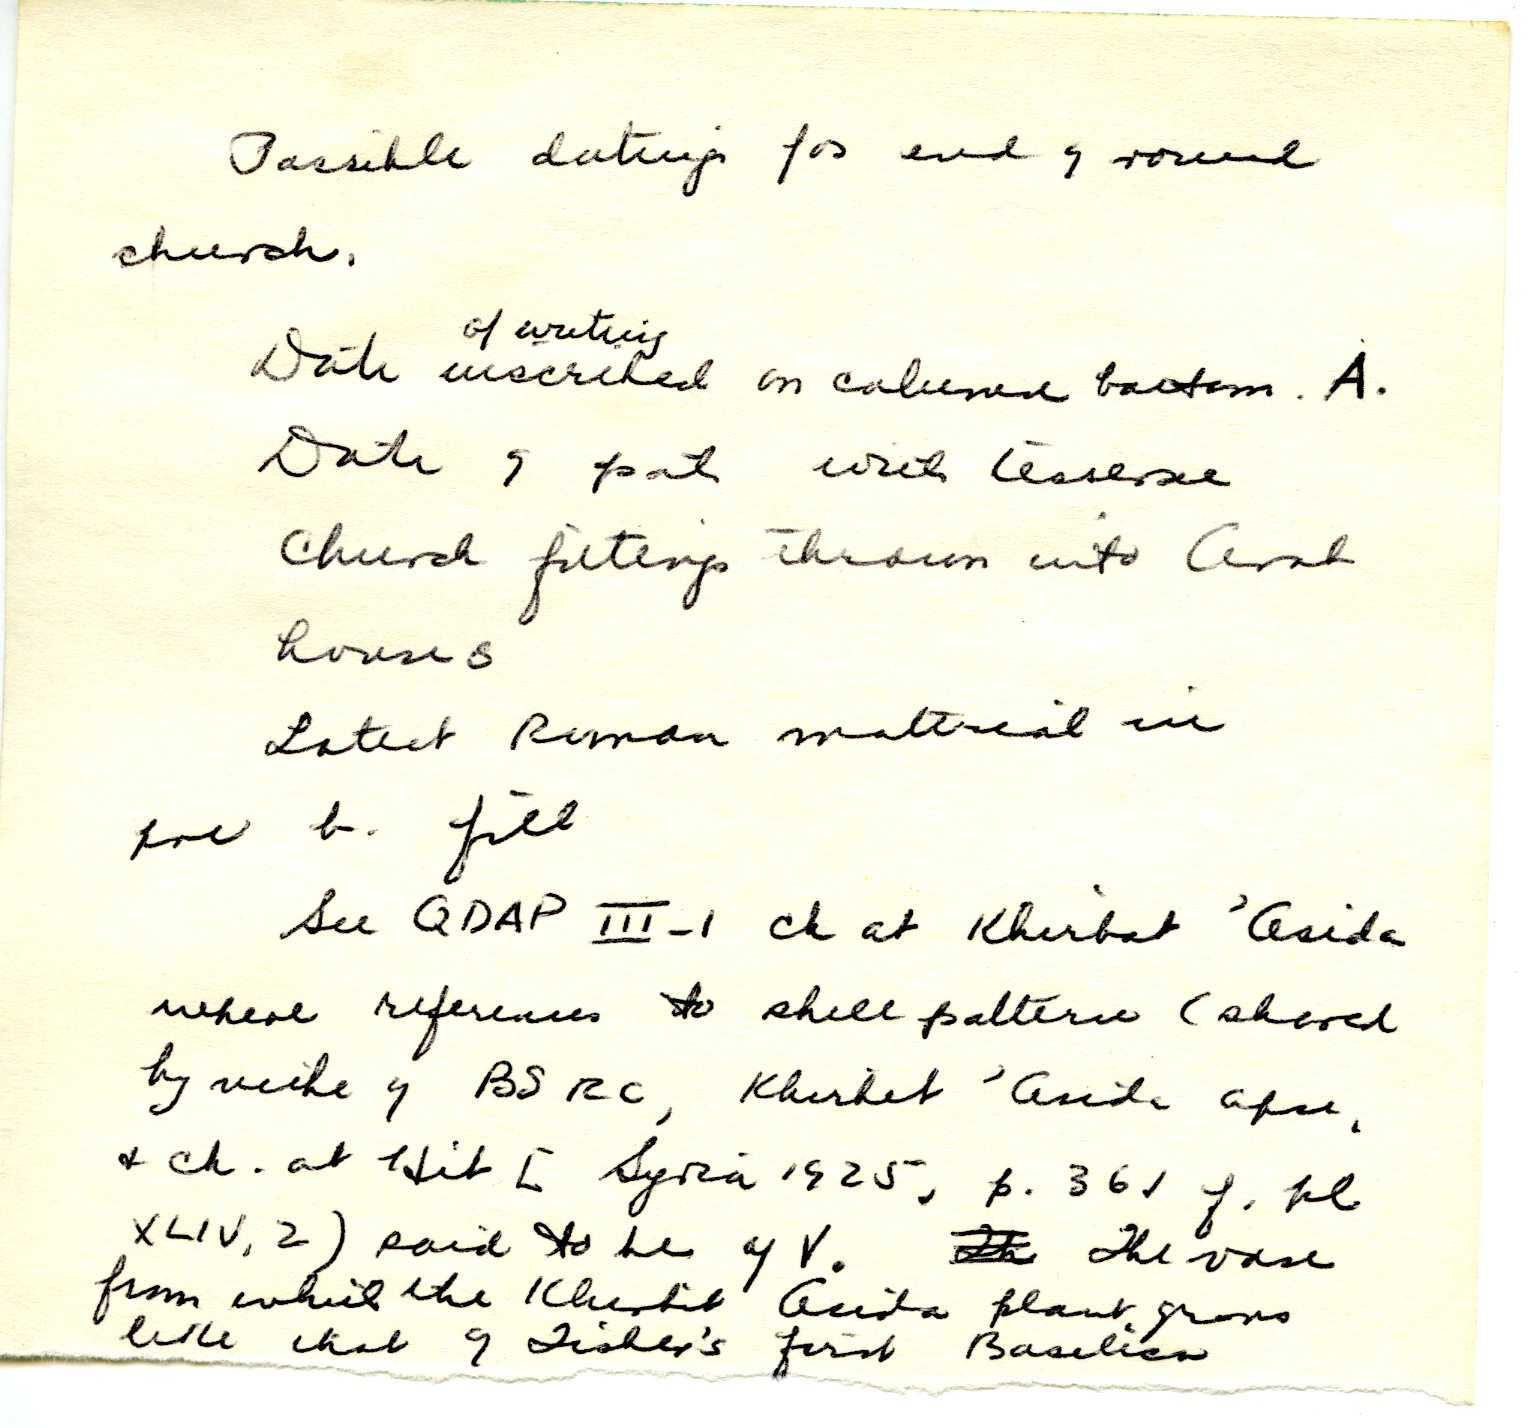 Possible datings for end of round
church.
of writing
Date inscribed on column bottom. A.
Date of pot with tesserae
Church fittings thrown into Arab
houses
Latest Roman material in
pre b. fill
See QDAP III-1 ch at Khirbat 'Asida
where references to shell pattern (shared
by niche of BSRC, Khirbet 'Asida apse,
+ ch. at Hit [ Syria 1925, p. 361 f. pl
XLIV, 2) said to be of V. The vase
from which the Khirbit Asida plant grows
like that of Fisher's first Basilica